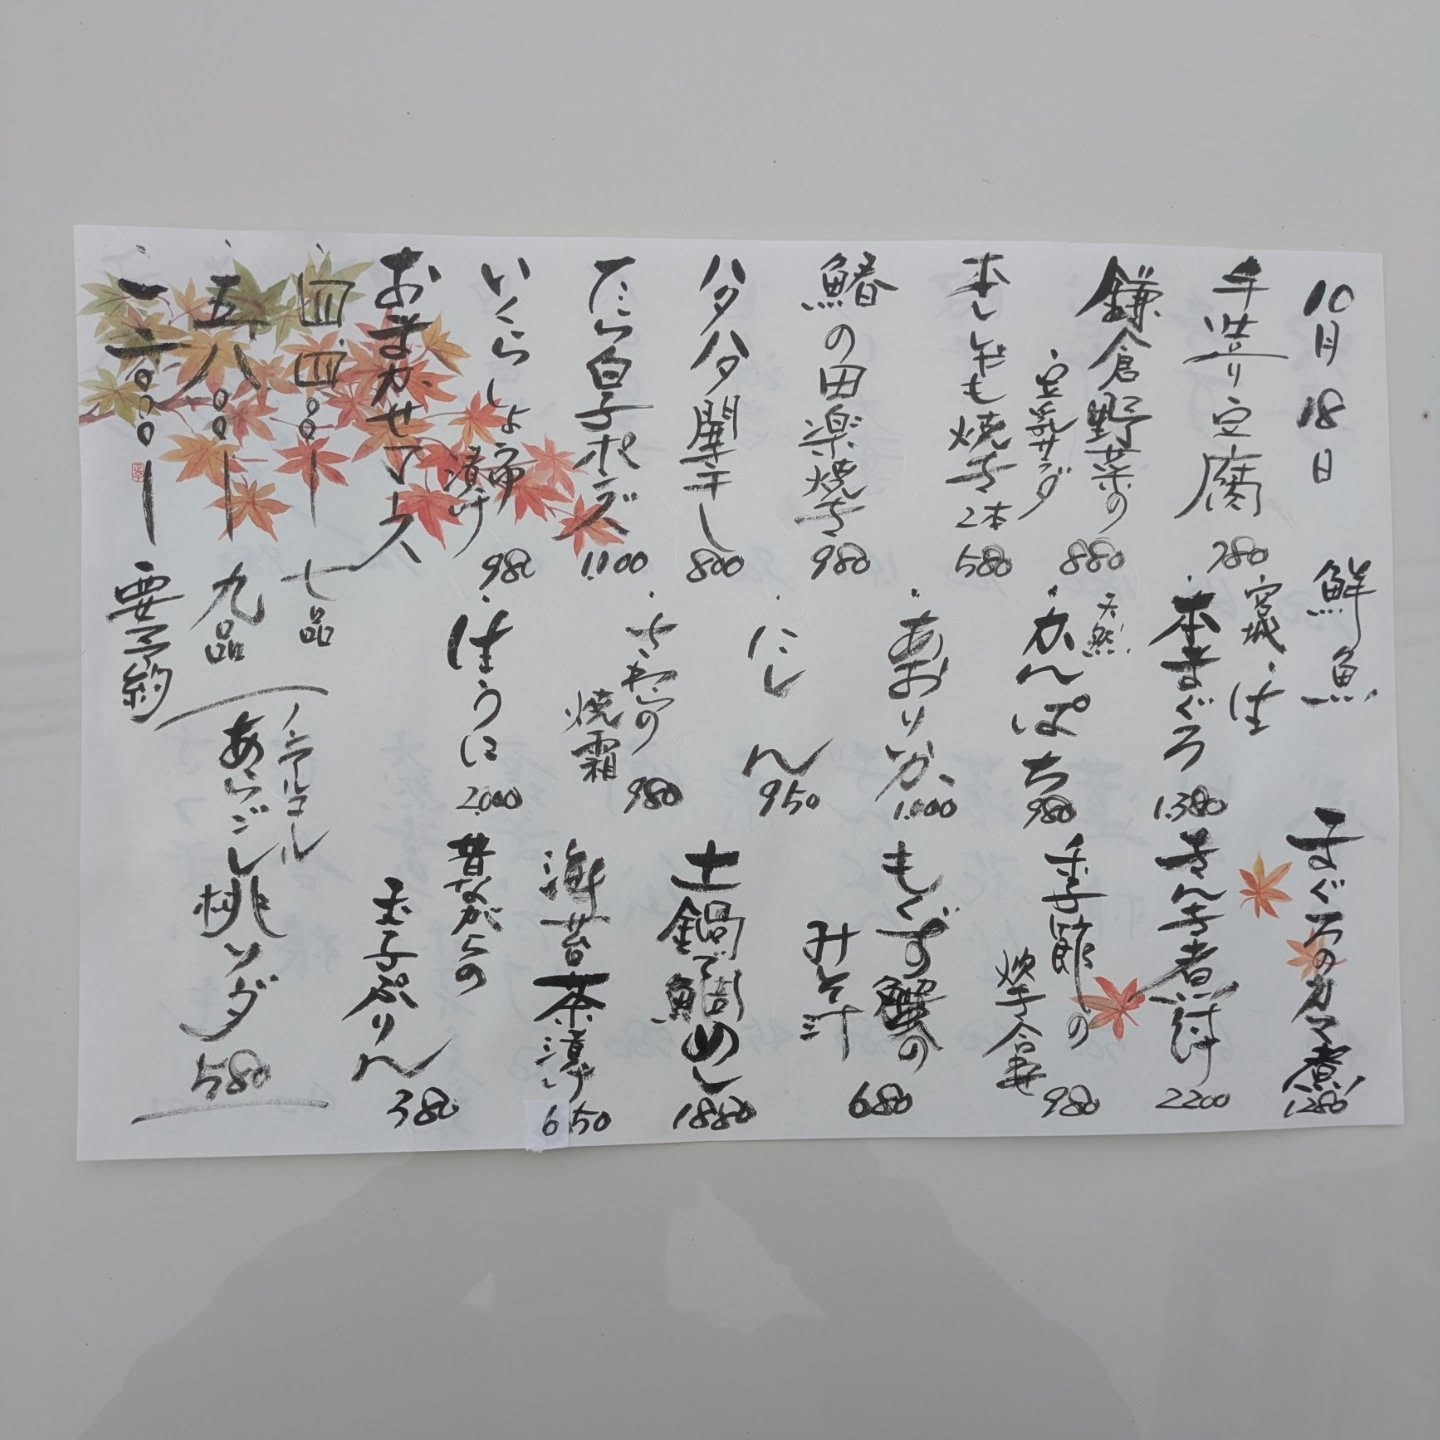 10月18日
手造り豆腐
780
鎌倉野菜の
豆乳サラダ
880
本ししゃも焼き2本
580
鰆の田楽焼き
980
ハタハタ開干し
800
たら白子ポン
1.100
いくらしょう油漬け
980
おまかせコース
四、四〇〇ー七品
五、八〇〇ー九品
一二、〇〇〇ー要予約
鮮魚
宮城・生
・本まぐろ
1.380
天然
・かんぱち
980
・あおりいか
1.000
・にしん
950
・さわらの
焼霜
980
・生うに
2.000
ノンアルコール
あらごし桃ソーダ
580
まぐろのカマ煮
1280
きんき煮付
2200
季節の
炊き合せ
980
もくず蟹の
みそ汁
680
土鍋で鯛めし
1880
海苔茶漬け
650
昔ながらの
玉子ぷりん
380